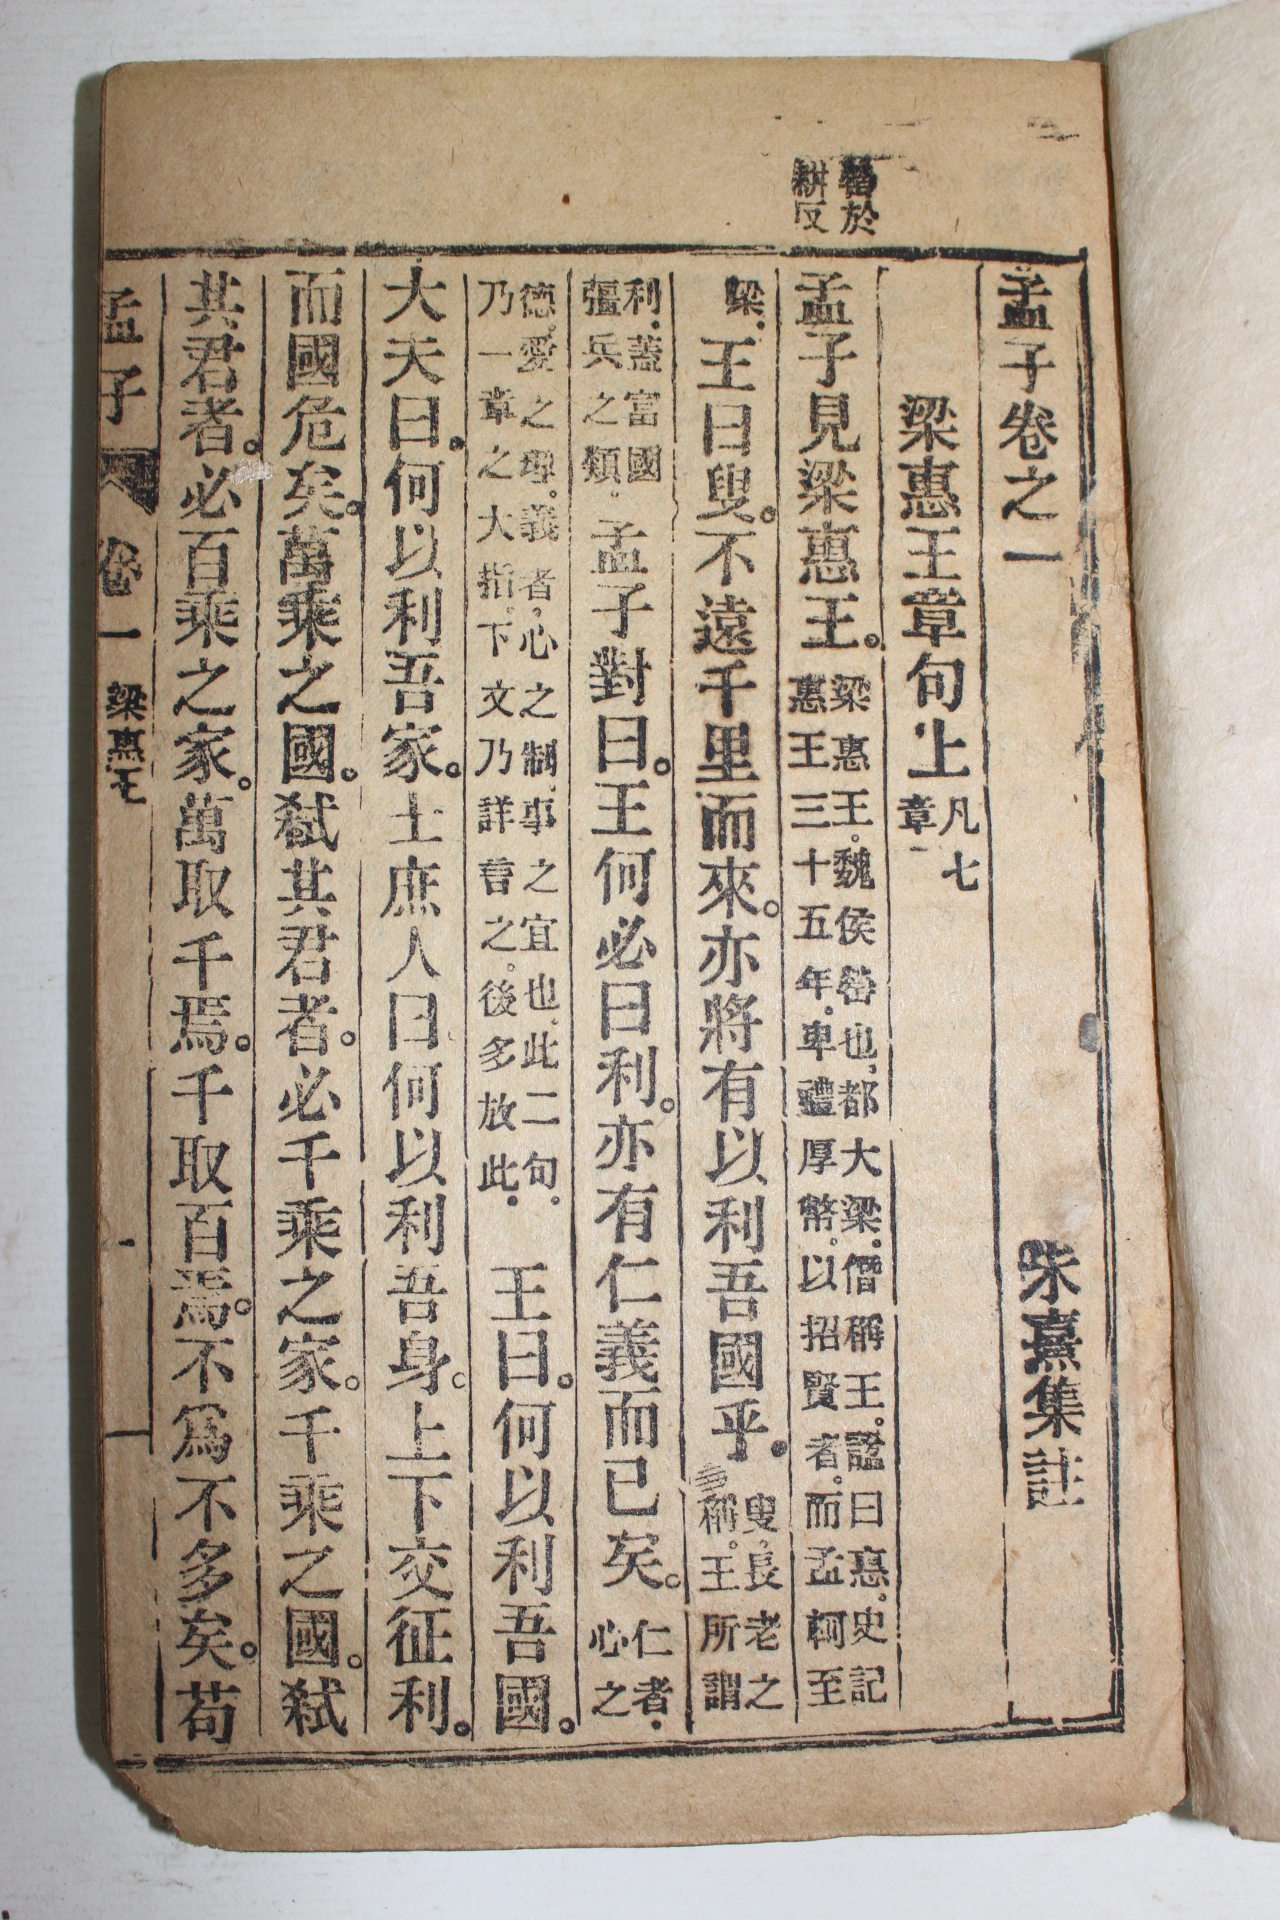 罃於
耕反
孟子卷之一
朱熹集註
梁惠王章句上
凡七
章
孟子見梁惠王。
梁惠王。魏侯罃也，都大梁。僭稱王。諡曰惠。史記
惠王三十五年。卑禮厚幣。以招賢者。而孟軻至
梁。
王曰叟。不遠千里而來。亦將有以利吾國乎。
叟，長老之
稱。王所謂
利，蓋富國
彊兵之類。
孟子對曰。王何必曰利。亦有仁義而已矣。
仁者，
心之
德，愛之理。義者，心之制，事之宜也，此二句，
乃一章之大指，下文乃詳言之。後多放此。
王曰。何以利吾國。
大夫曰。何以利吾家。士庶人曰何以利吾身。上下交征利。
而國危矣。萬乘之國。弒其君者。必千乘之家。千乘之國。弒
其君者。必百乘之家。萬取千焉。千取百焉。不爲不多矣。苟
孟子 卷一 梁惠王